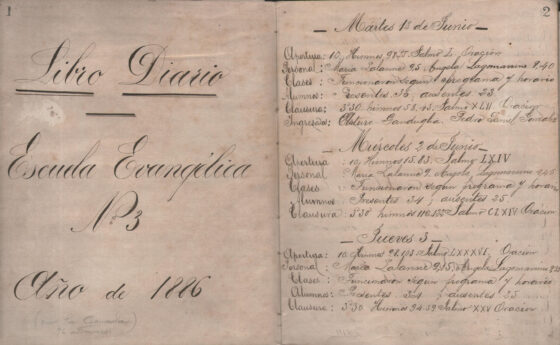 1
Libro Diario
Escuela Evangélica
Nº 3
Año de 1886
2
Martes 1º de Junio
Apertura: 10, Himnos, Salmo Oración
Personal: Maria Lalanne 9.25 Angela Lagomarsino 9.40
Clases: Funcionaron según programa y horario
Alumnos: Presentes 36, ausentes 23
Clausura: 3'30, himnos 58.43. Salmo XLV Oración
Ingresados: Arturo Gandugha, Pedro
Miércoles 2 de Junio
Apertura: 10, Himnos 15.83. Salmo LXIV
Personal Maria Lalanne 9. Angela Lagomarsino
Clases: Funcionaron según programa y horario
Alumnos: Presentes 34; ausentes 25
Clausura: 3'30 himnos Salmo CLXIV Oración
Jueves 3
Apertura: 10, Himnos Salmo LXXXVI, Oración
Personal: Maria Lalanne Angela Lagomarsino
Clases: Funcionaron según programa y horario
Alumnos: Presentes 34; ausentes 25
Clausura: 3'30 Himnos 34.59 Salmo XXV Oración